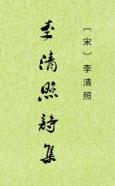 李清照詩集
〔宋〕李清照